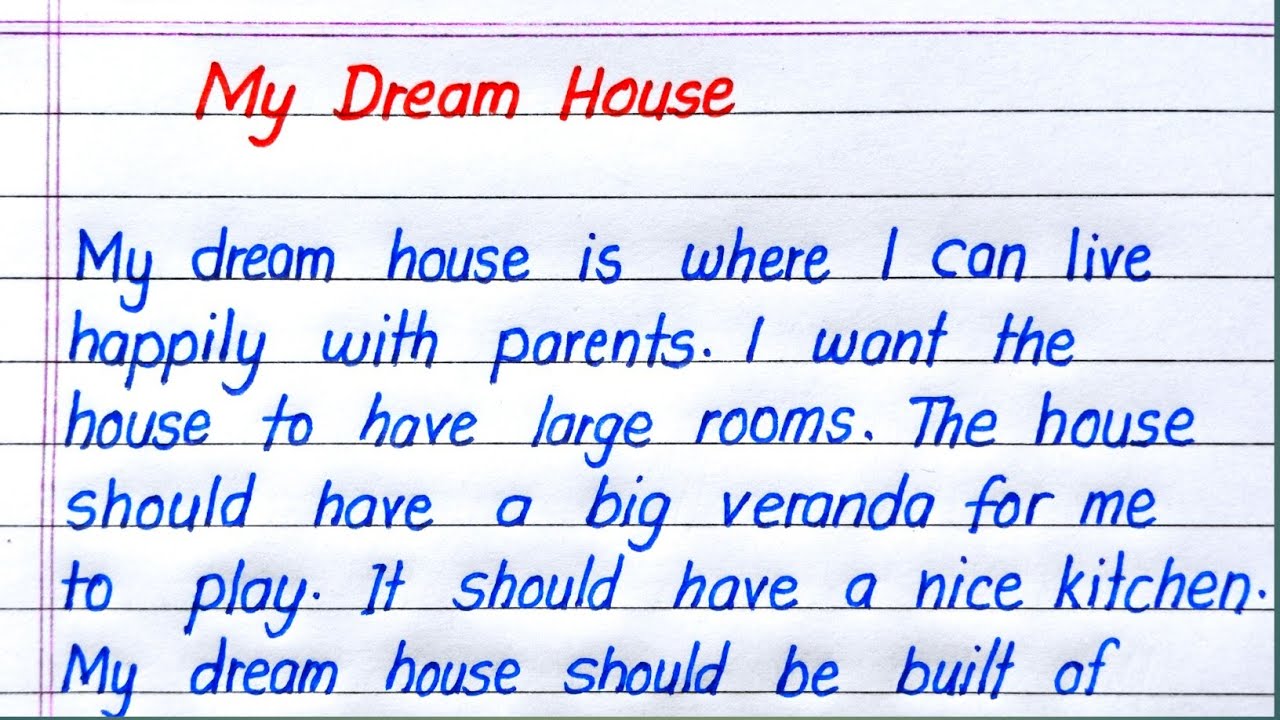 My Dream House
My dream house is where I can live
happily with parents. I want the
house to have large rooms. The house
should have a big veranda for me
to play. It should have a nice kitchen.
My dream house should be built of